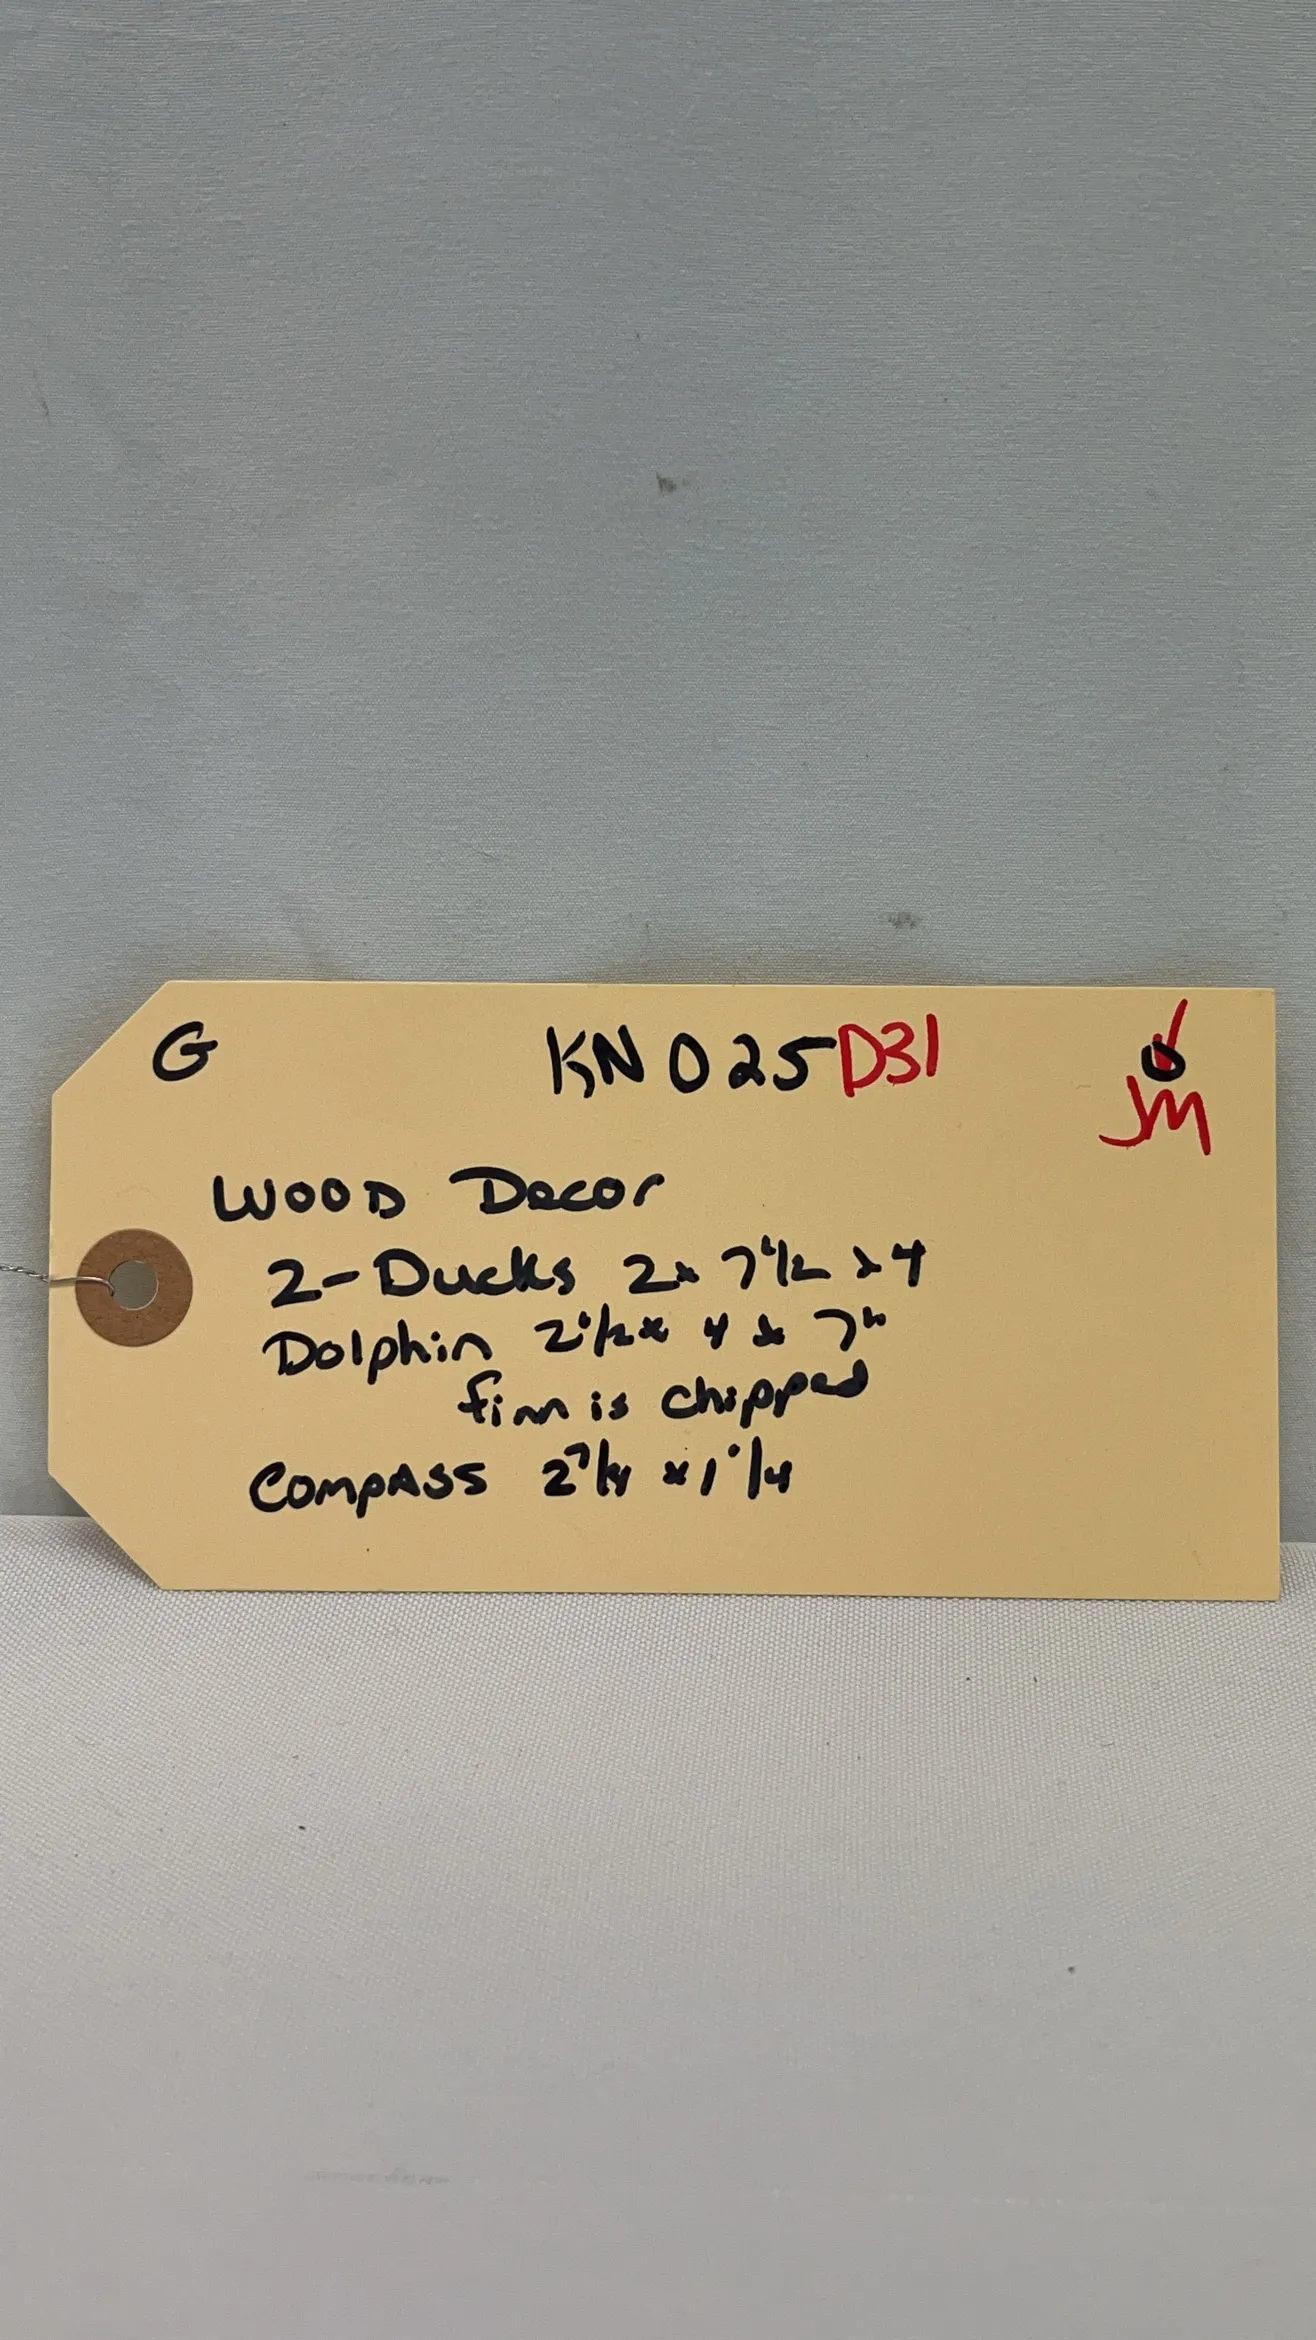 G KN025D31 0
JM
WOOD Decor
2-Ducks 2x 7 1/2 x 4
Dolphin 2 1/2 x 4 x 7"
finn is chipped
COMPASS x 1 1/4